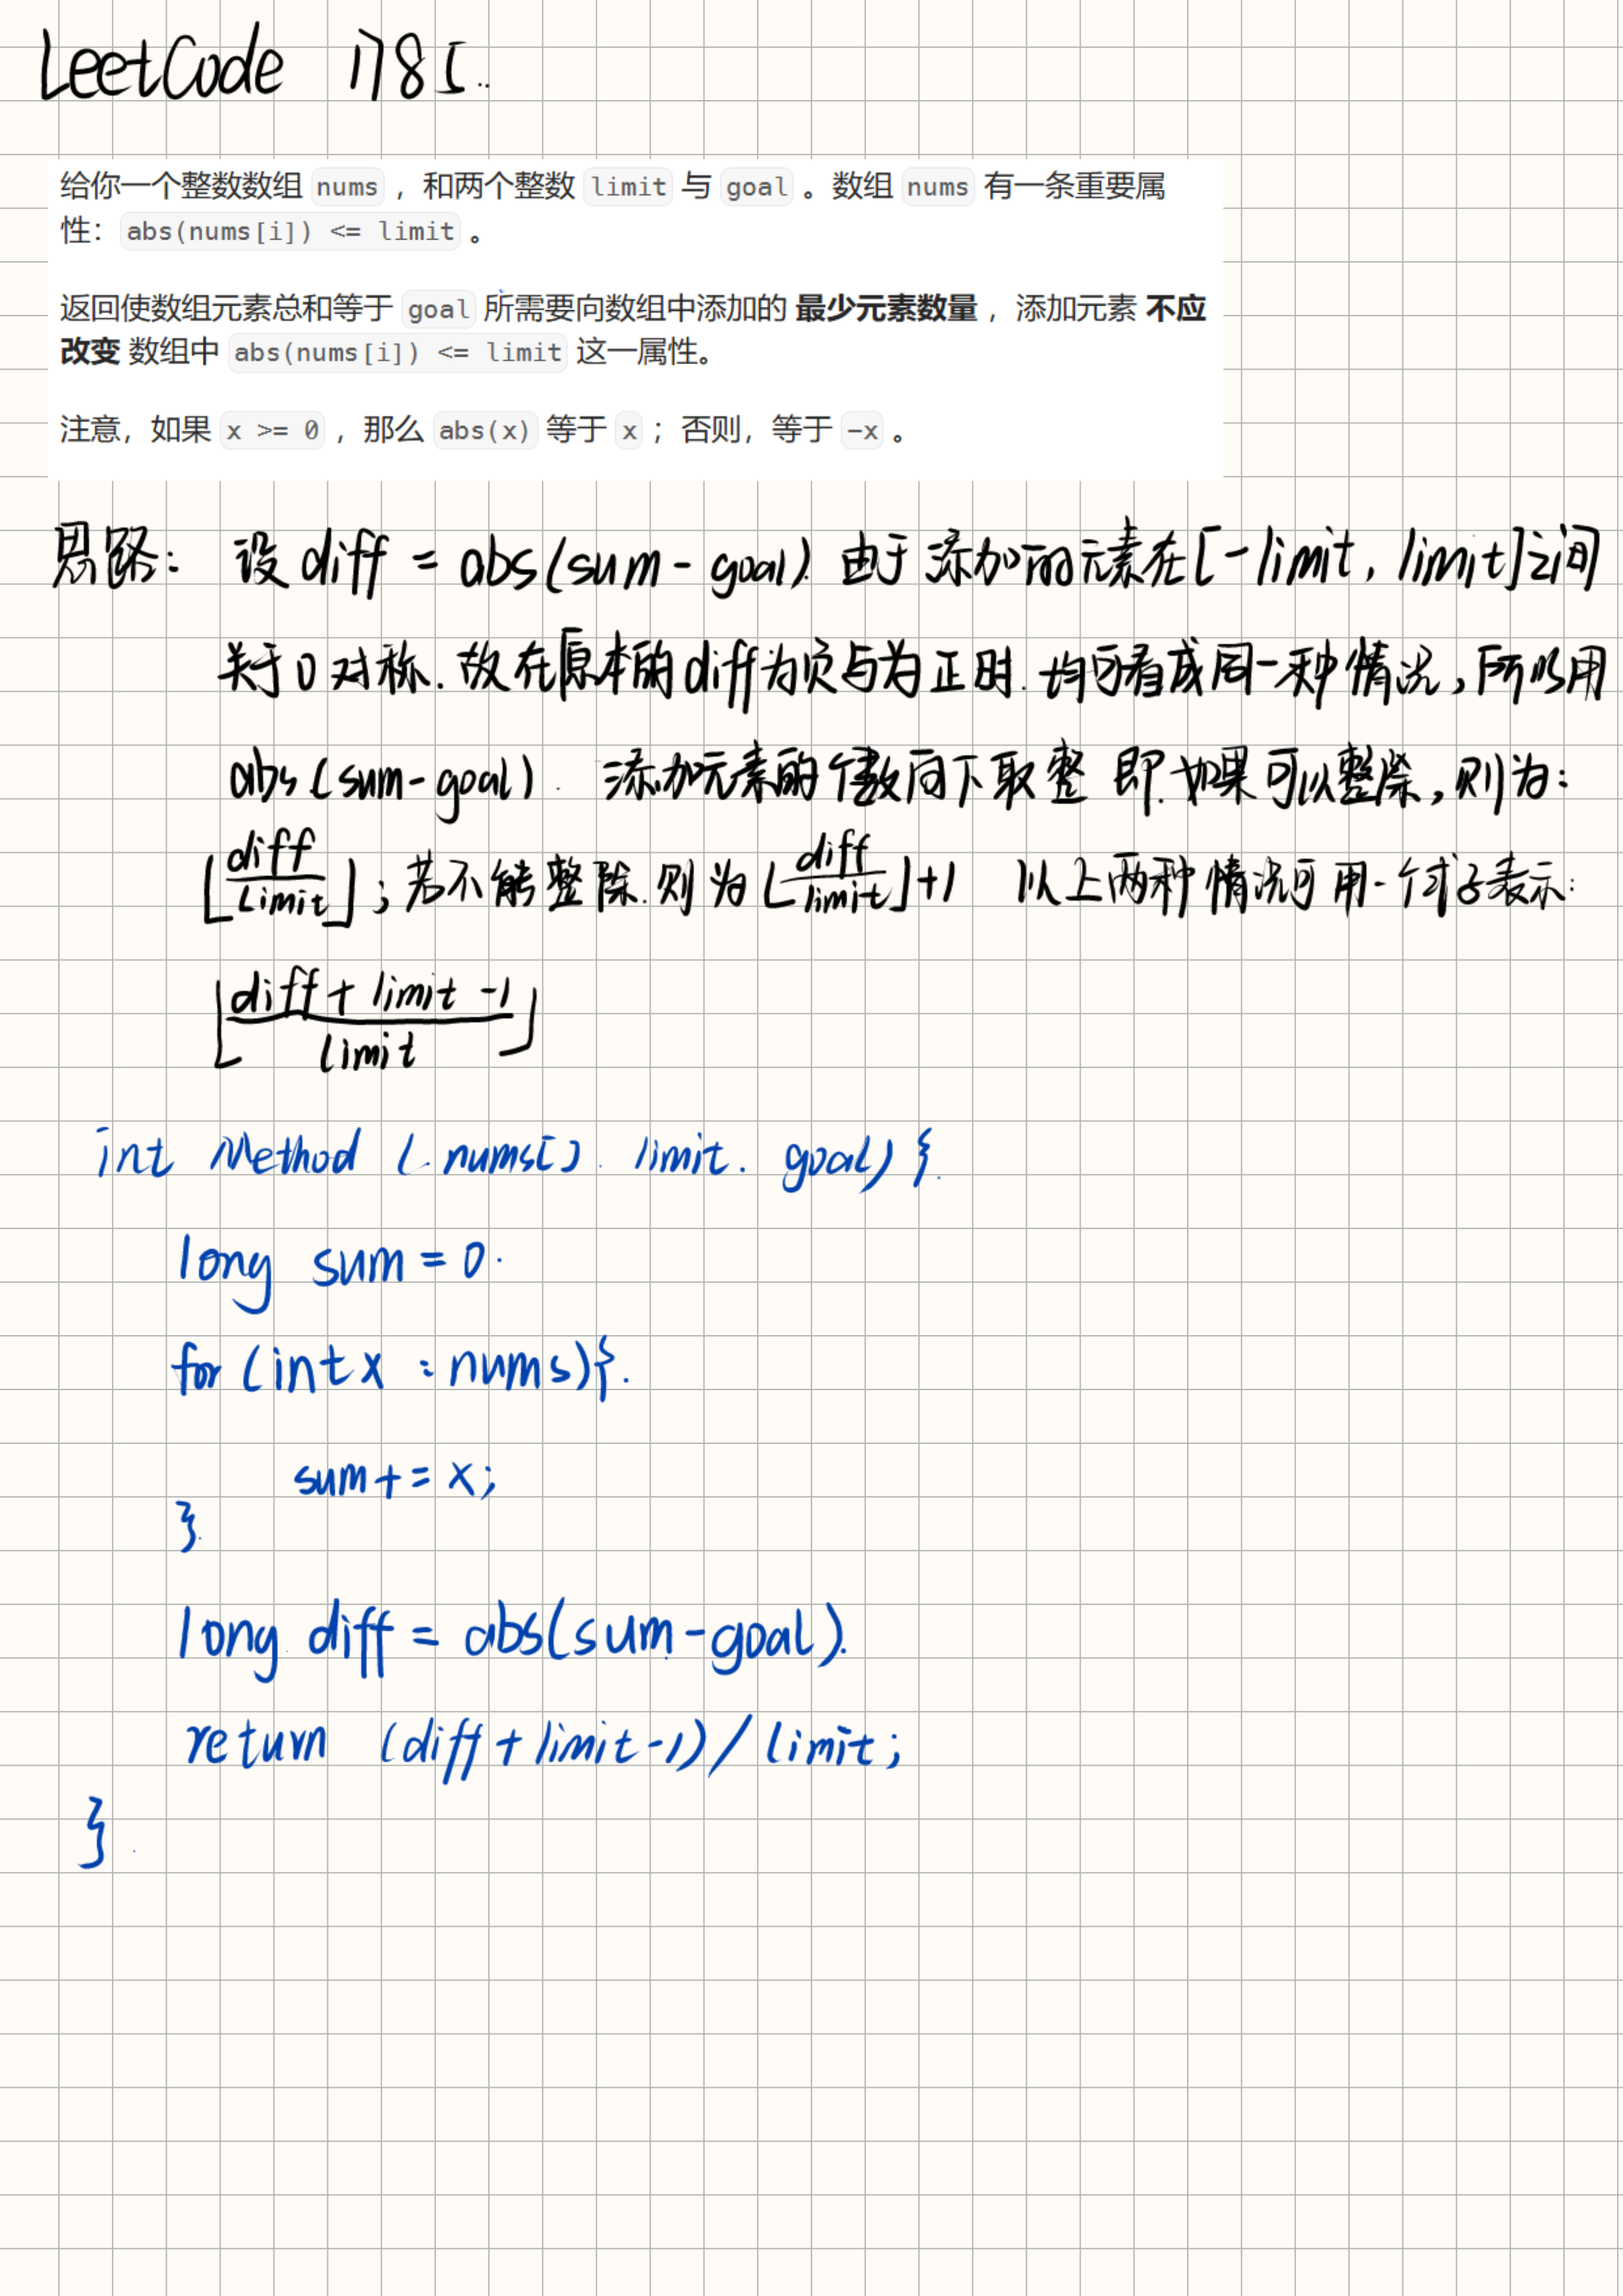 LeetCode 1785
给你一个整数数组 nums ，和两个整数 limit 与 goal 。数组 nums 有一条重要属
性：abs(nums[i]) <= limit 。
返回使数组元素总和等于 goal 所需要向数组中添加的 最少元素数量 ，添加元素 不应
改变 数组中 abs(nums[i]) <= limit 这一属性。
注意，如果 x >= 0 ，那么 abs(x) 等于 x ；否则，等于 -x 。
思路： 设 diff = abs(sum-goal). 由于添加的元素在[-limit, limit]之间
关于0对称. 故在原本的diff为负与为正时. 均可看成同一种情况, 所以用
abs(sum-goal). 添加元素的个数向下取整 即.如果可以整除, 则为:
⌊diff/limit⌋; 若不能整除.则为⌊diff/limit⌋+1 以上两种情况可用一个式子表示:
⌊(diff + limit -1)/limit⌋
int Method (nums[]. limit. goal) {
long sum = 0.
for (int x : nums){
sum += x;
}
long diff = abs(sum-goal).
return (diff + limit-1) / limit;
}